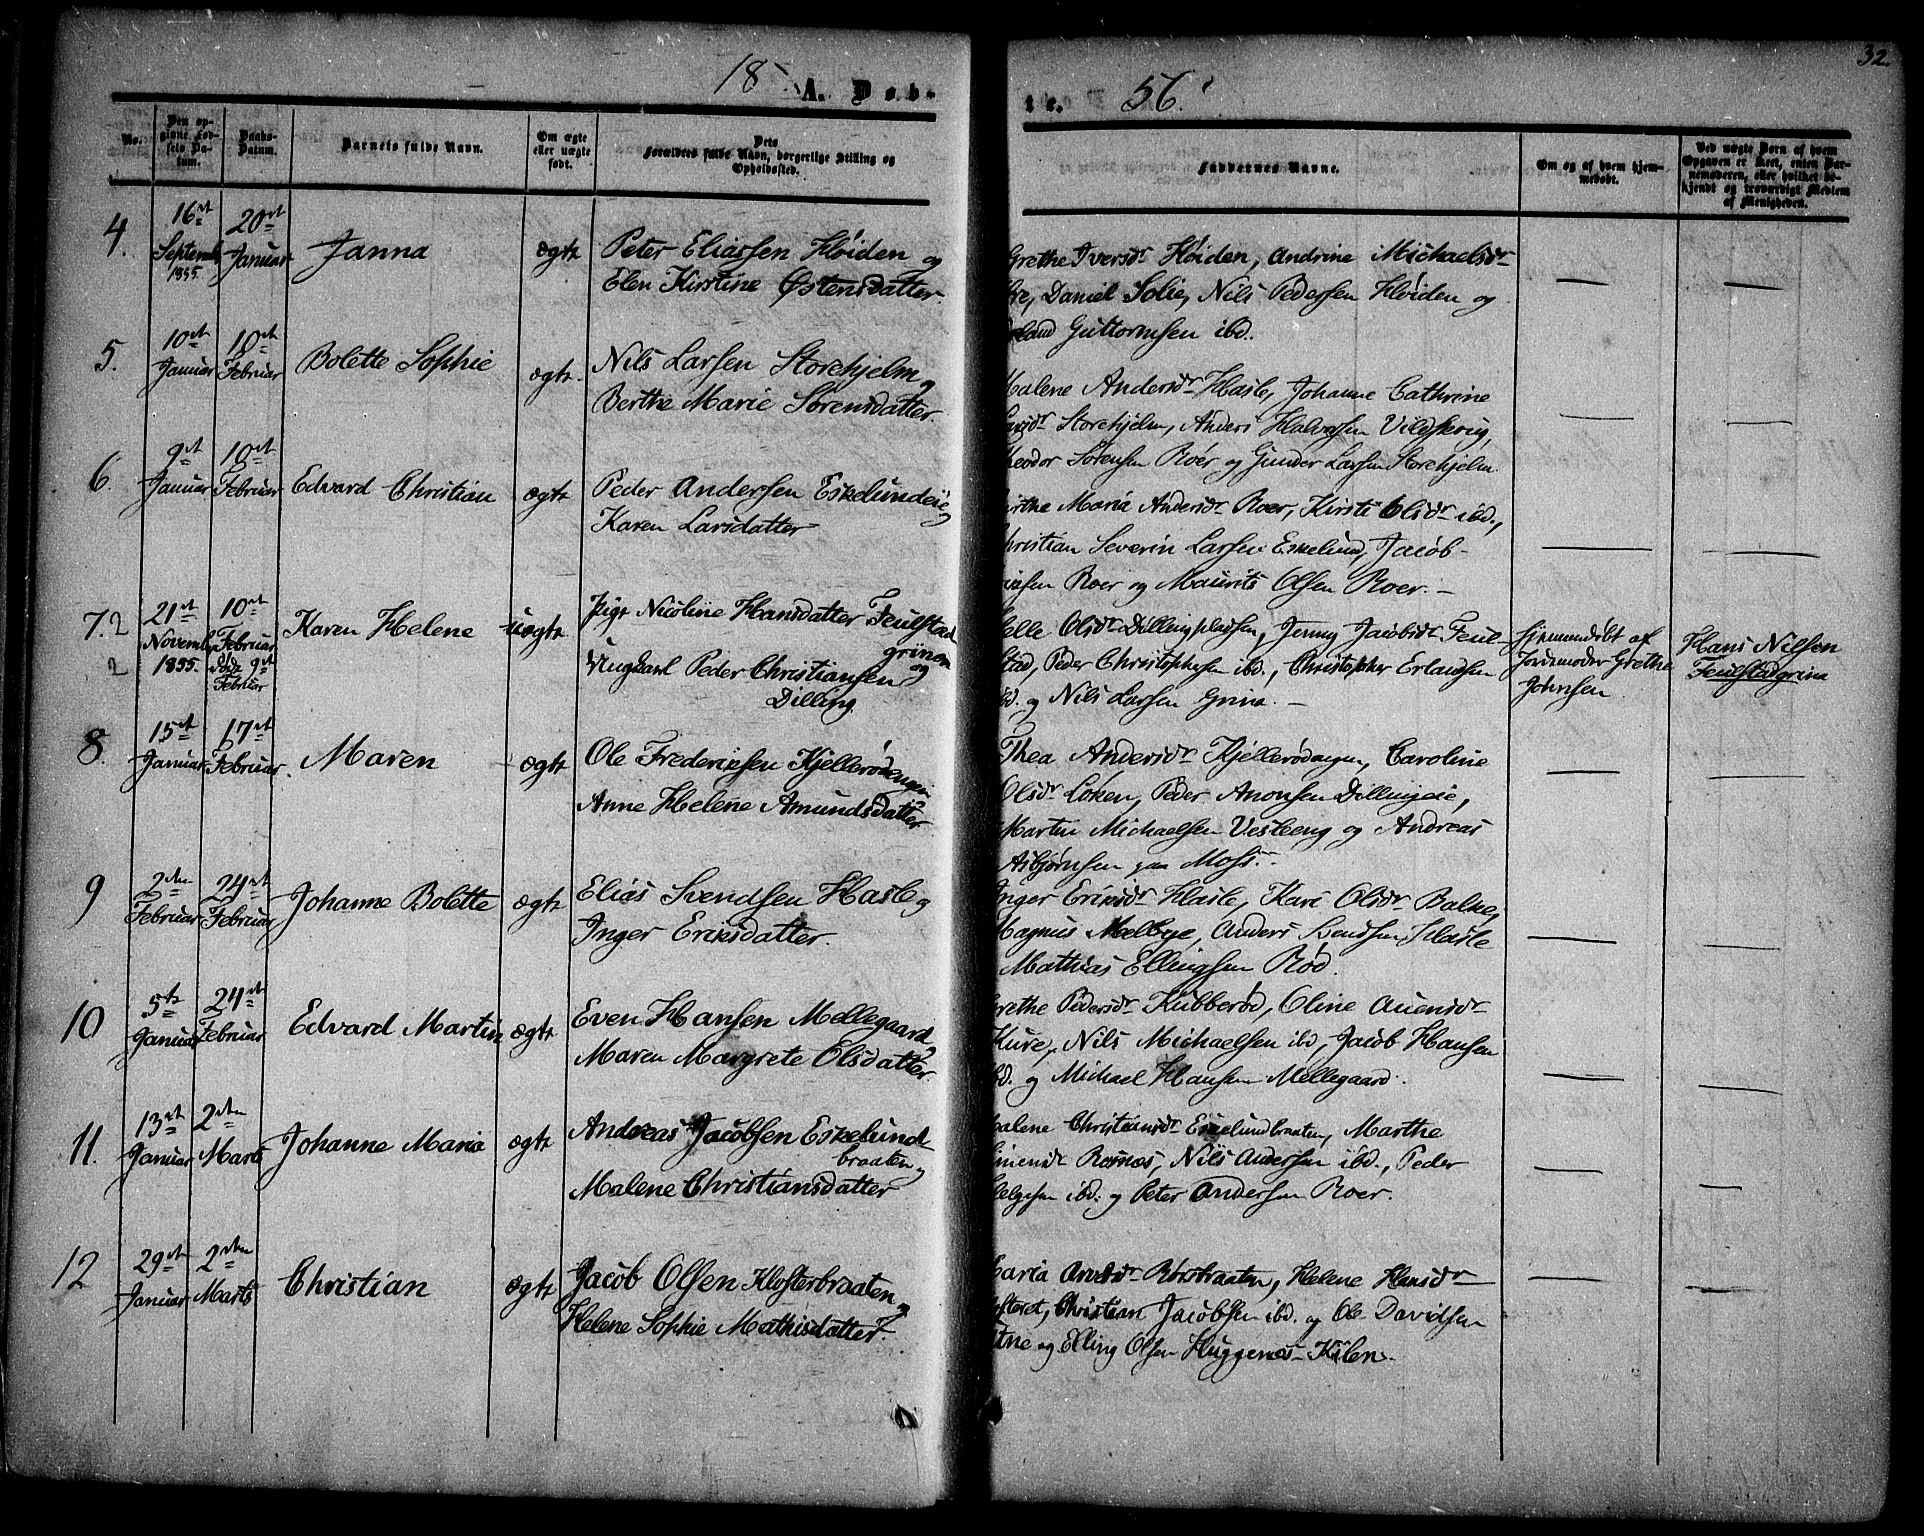 32.
18 A. Døb-
te. 56.
No.
Den op-
givne Fød-
sels Da-
tum.
Daabs-
Datum.
Barnets fulde Navn.
Om ægte
eller uægte
født.
Dets
Forældres fulde Navn, borgerlige Stilling og
Opholdssted.
Faddernes Navne.
Om og af hvem hjem-
medøbt.
Ved uægte Børn af hvem
Opgaven er skeet, enten Bar-
nemoderen, eller hvilket be-
kjendt og troværdigt Medlem
af Menigheden.
4.
16de
Septemb
1855
20de
Januar
Janna
ægte
Peter Eliassen Høiden og
Elen Kirstine Østensdatter.
Grethe Iversdr Høiden, Andrine Michaelsdr
Daniel Solie, Nils Pedersen Høiden og
Guttormsen ibd.
5.
10de
Januar
10de
Februar
Bolette Sophie
ægte
Nils Larsen Storehjelm og
Berthe Marie Sørensdatter.
Malene Andersdr Hasle, Johanne Cathrine
Larsdr Storehjelm, Anders Halvorsen Vildskrug,
Theodor Sørensen Roer og Gunder Larsen Storehjelm.
6.
9de
Januar
10de
Februar
Edvard Christian
ægte
Peder Andersen Eskelundeie og
Karen Larsdatter
Maria Andersdr Roer, Kirsti Olsdr ibd.,
Christian Severin Larsen Eskelund, Jacob
Roer og Maurits Olsen Roer. -
7.2
2
21de
Novemb
1855.
10de
Februar
død 9de
Februar
Karen Helene
uægte
Pige Nicoline Hansdatter Feulstad
grinen
og
Ungkarl Peder Christiansen
Dilling
Helle Olsdr Dillingpladsen, Jenny Jacobsdr Feul-
stad, Peder Christophersen ibd., Christopher Erlandsen
ibd. og Nils Larsen Grina. -
Hjemmedøbt af
Jordemoder Grethe
Johnsen
Hans Nilsen
Feulstadgrina
8.
15de
Januar
17de
Februar.
Maren
ægte
Ole Frederiksen Kjellerødengen
Anne Helene Amundsdatter
Thea Andersdr Kjellerødengen, Caroline
Olsdr Løken, Peder Anonsen Dillingeie,
Martin Michaelsen Vesteng og Andreas
Asbjørnsen paa Moss.
9
2den
Februar
24de
Februar
Johanne Bolette
ægte
Elias Svendsen Hasle og
Inger Eriksdatter.
Inger Eriksdr Hasle, Kari Olsdr Balke,
Magnus Melbye, Anders Svendsen Hasle
Mathias Ellingsen Rød.
10
5te
Januar
24de
Februar
Edvard Martin
ægte
Even Hansen Mellegaard og
Maren Margrete Olsdatter.
Grethe Pedersdr Kubberød, Oline Auensdr
Kure, Nils Michaelsen ibd, Jacob Hansen
ibd. og Michael Hansen Mellegaard.
11.
13de
Januar
2den
Marts
Johanne Maria
ægte
Andreas Jacobsen Eskelund-
braaten og
Malene Christiansdatter
Malene Christiansdr Eskelundbraaten, Marthe
Ramnes, Nils Andersen ibd., Peder
Helgesen ibd. og Peter Andersen Roer.
12
29de
Januar
2den
Marts
Christian
ægte
Jacob Olsen Klosterbraaten og
Helene Sophie Mathisdatter
Maria Rørsbraaten, Helene Hansdr
Klosteret, Christian Jacobsen ibd. og Ole Davidsen
og Elling Olsen Huggenes-Kilen.